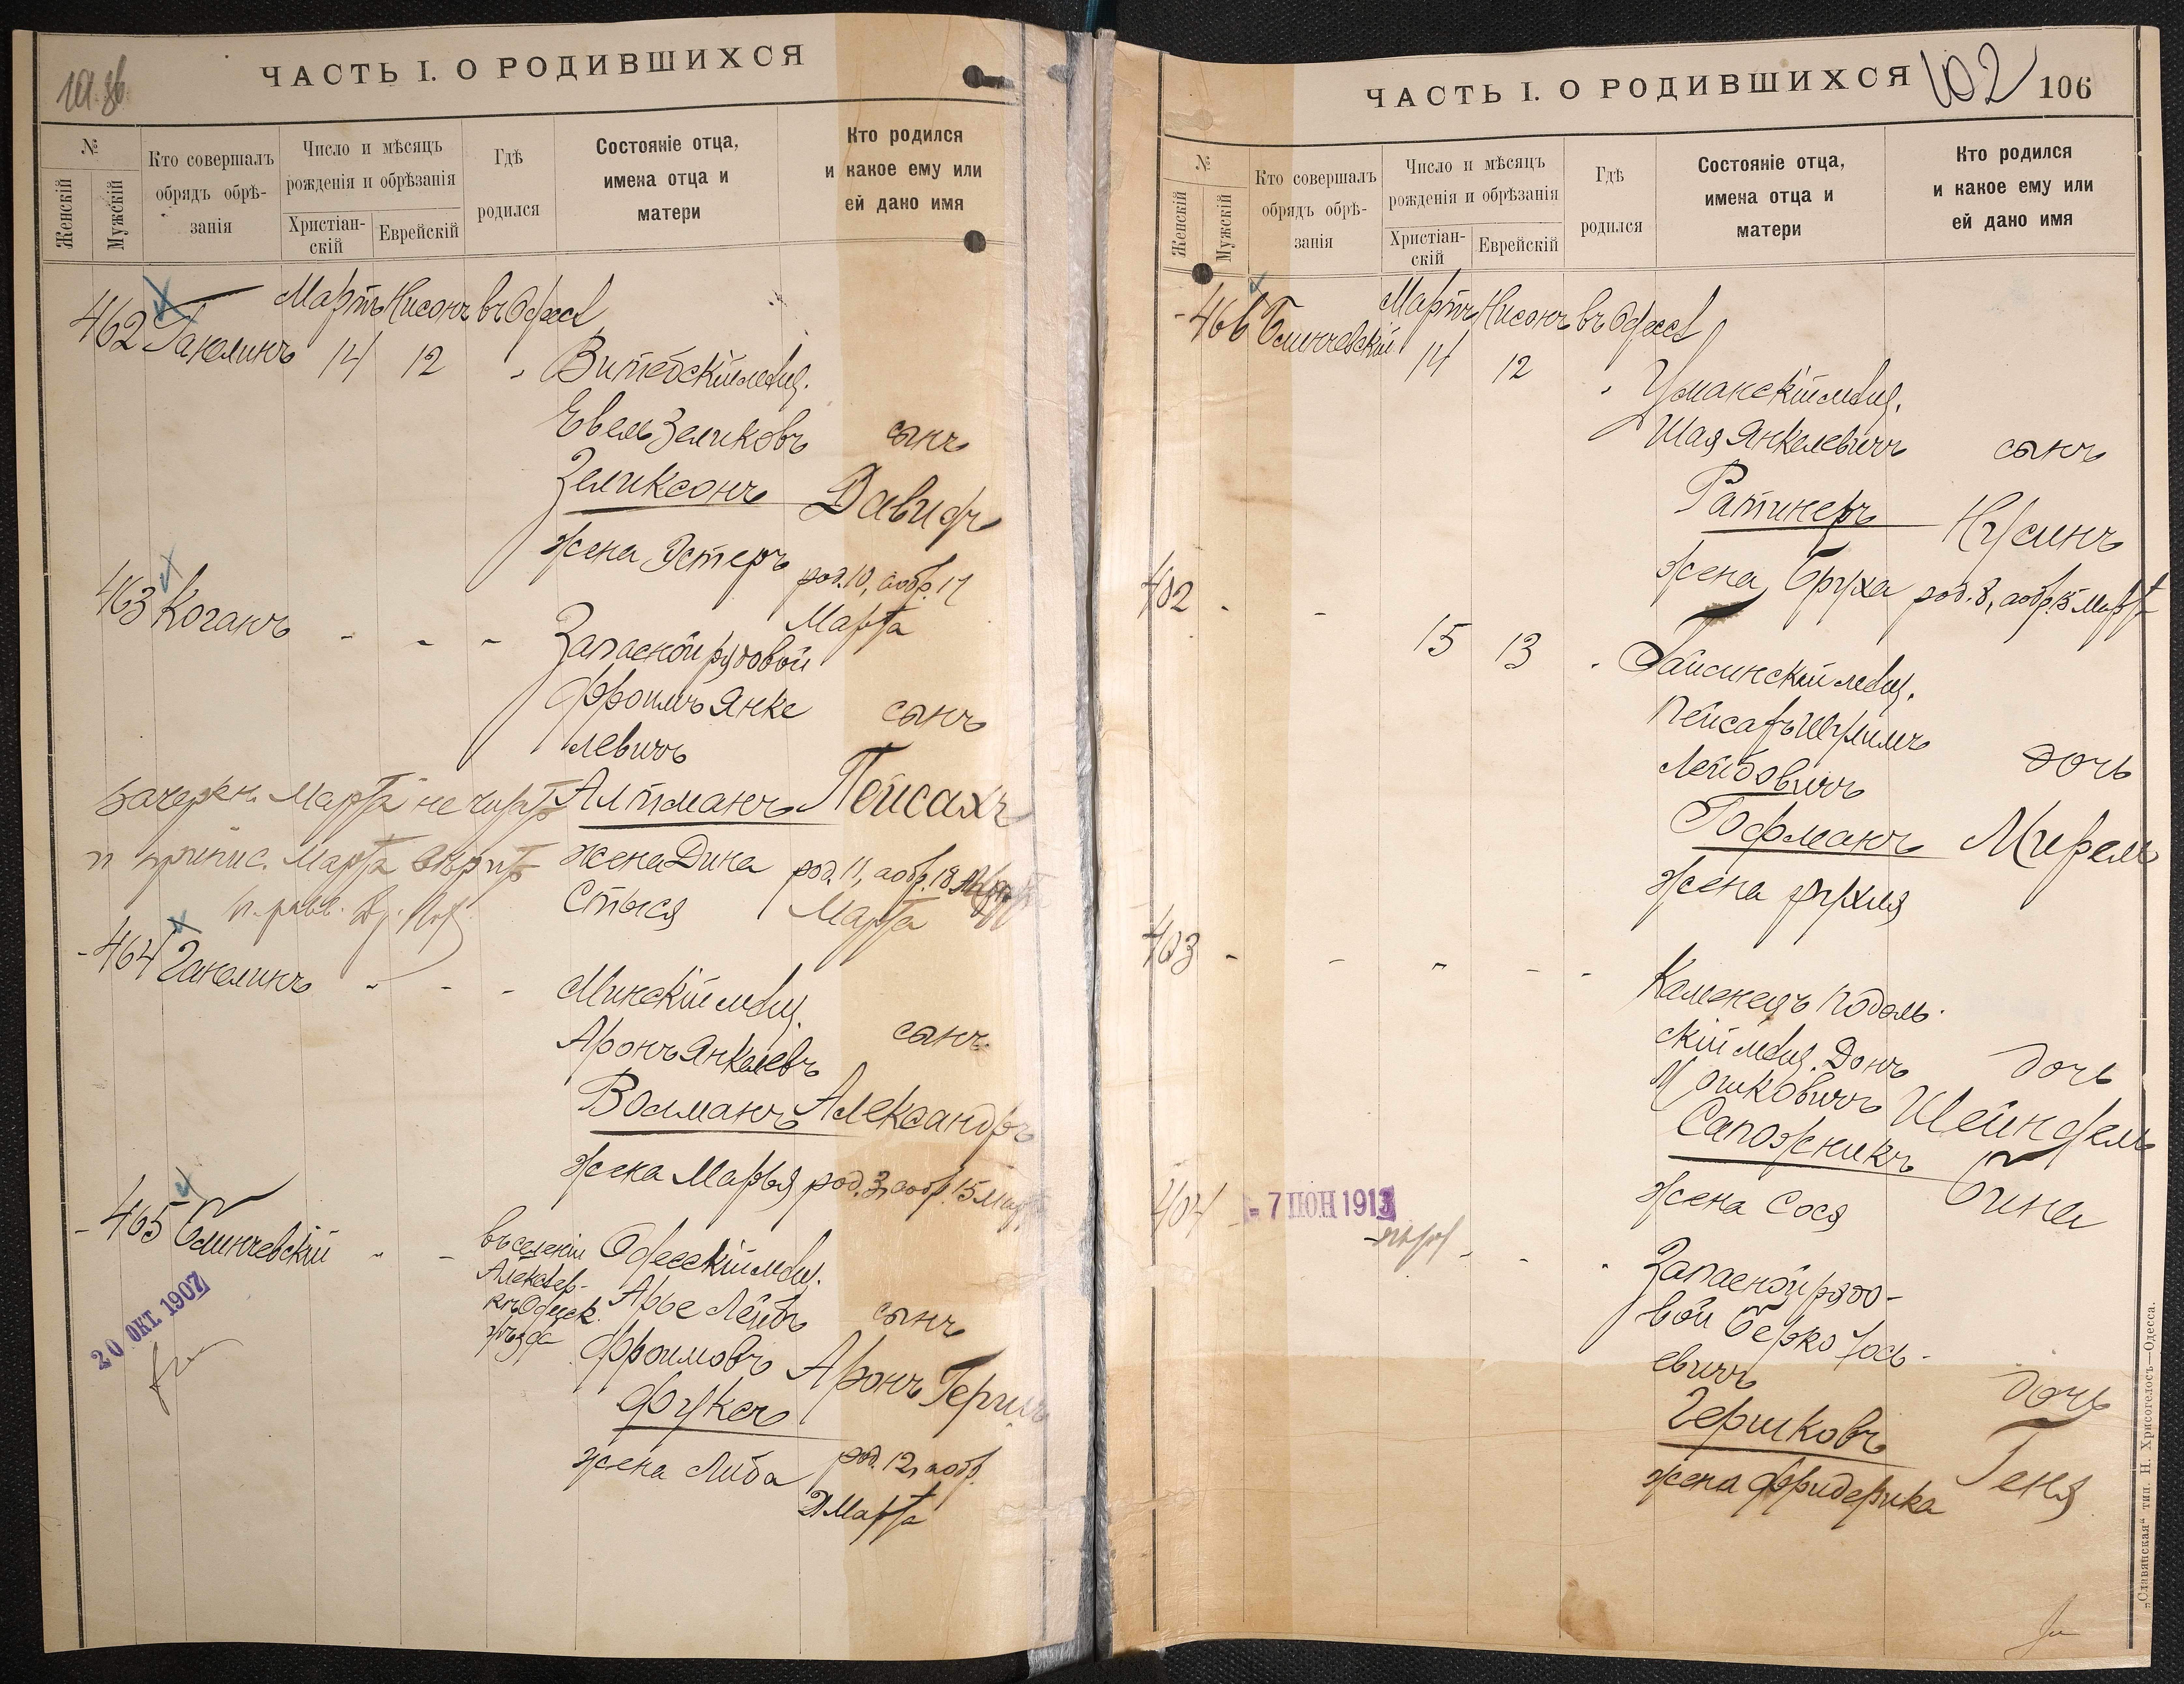 ЧАСТЬ I. О РОДИВШИХСЯ
№
Женскій
Мужскій
Кто совершалъ
обрядъ обрѣ-
занія
Число и мѣсяцъ
рожденія и обрѣзанія
Христіан-
скій
Еврейскій
Гдѣ
родился
Состояніе отца,
имена отца и
матери
Кто родился
и какое ему или
ей дано имя
Мартъ Нисонъ въ Одессѣ
462 Ганелинъ 14 12 " Витебскій мѣщ.
Евель Зеликовъ сынъ
Зеликсонъ Давидъ
жена Эстеръ род. 10, а обр. 17
Марта
463 Коганъ - - - Запасной рядовой
Фроимъ Янке
левичъ сынъ
Алтманъ Пейсахъ
жена Дина род. 11, а обр. 18
Стыся Марта
зачеркн. Марта не читать
и припис. Марта вѣрить
- 464 Ганелинъ " - - Минскій мѣщ.
Аронъ Янкелевъ сынъ
Волманъ Александръ
жена Марья род. 3, а обр. 15 Марта
- 465 Блинчевскій " - въ селеніи Одесскій мѣщ.
Алексѣев-
кѣ Одесск.
уѣзда
Арье Лейбъ сынъ
Фроимовъ Аронъ Герш
Фуксъ
жена Либа род. 12, а обр.
Марта
20 ОКТ. 1907
ЧАСТЬ I. О РОДИВШИХСЯ
102
106
№
Женскій
Мужскій
Кто совершалъ
обрядъ обрѣ-
занія
Число и мѣсяцъ
рожденія и обрѣзанія
Христіан-
скій
Еврейскій
Гдѣ
родился
Состояніе отца,
имена отца и
матери
Кто родился
и какое ему или
ей дано имя
Мартъ Нисонъ въ Одессѣ
- 466 Блинчевскій 14 12 " Уманскій мѣщ.
Шая Янкелевичъ сынъ
Ратинеръ Нусинъ
жена Бруха род. 8, а обр. 15 Марта
402 - - 15 13 " Гайсинскій мѣщ.
Пейсахъ Шулимъ
Лейбовичъ дочь
Гофманъ Мирель
жена Рухля
403 - - " - - Каменецъ Подоль-
скій мѣщ. Донъ дочь
Мошковичъ Шейндель
Сапожникъ Бина
жена Сося
404 - 7 ІЮН 1913 - - " Запасной рядо-
вой Берко Іось-
евичъ дочь
Гершковъ
жена Фридерика Геня
„Славянская" тип. Н. Хрисогелосъ—Одесса.